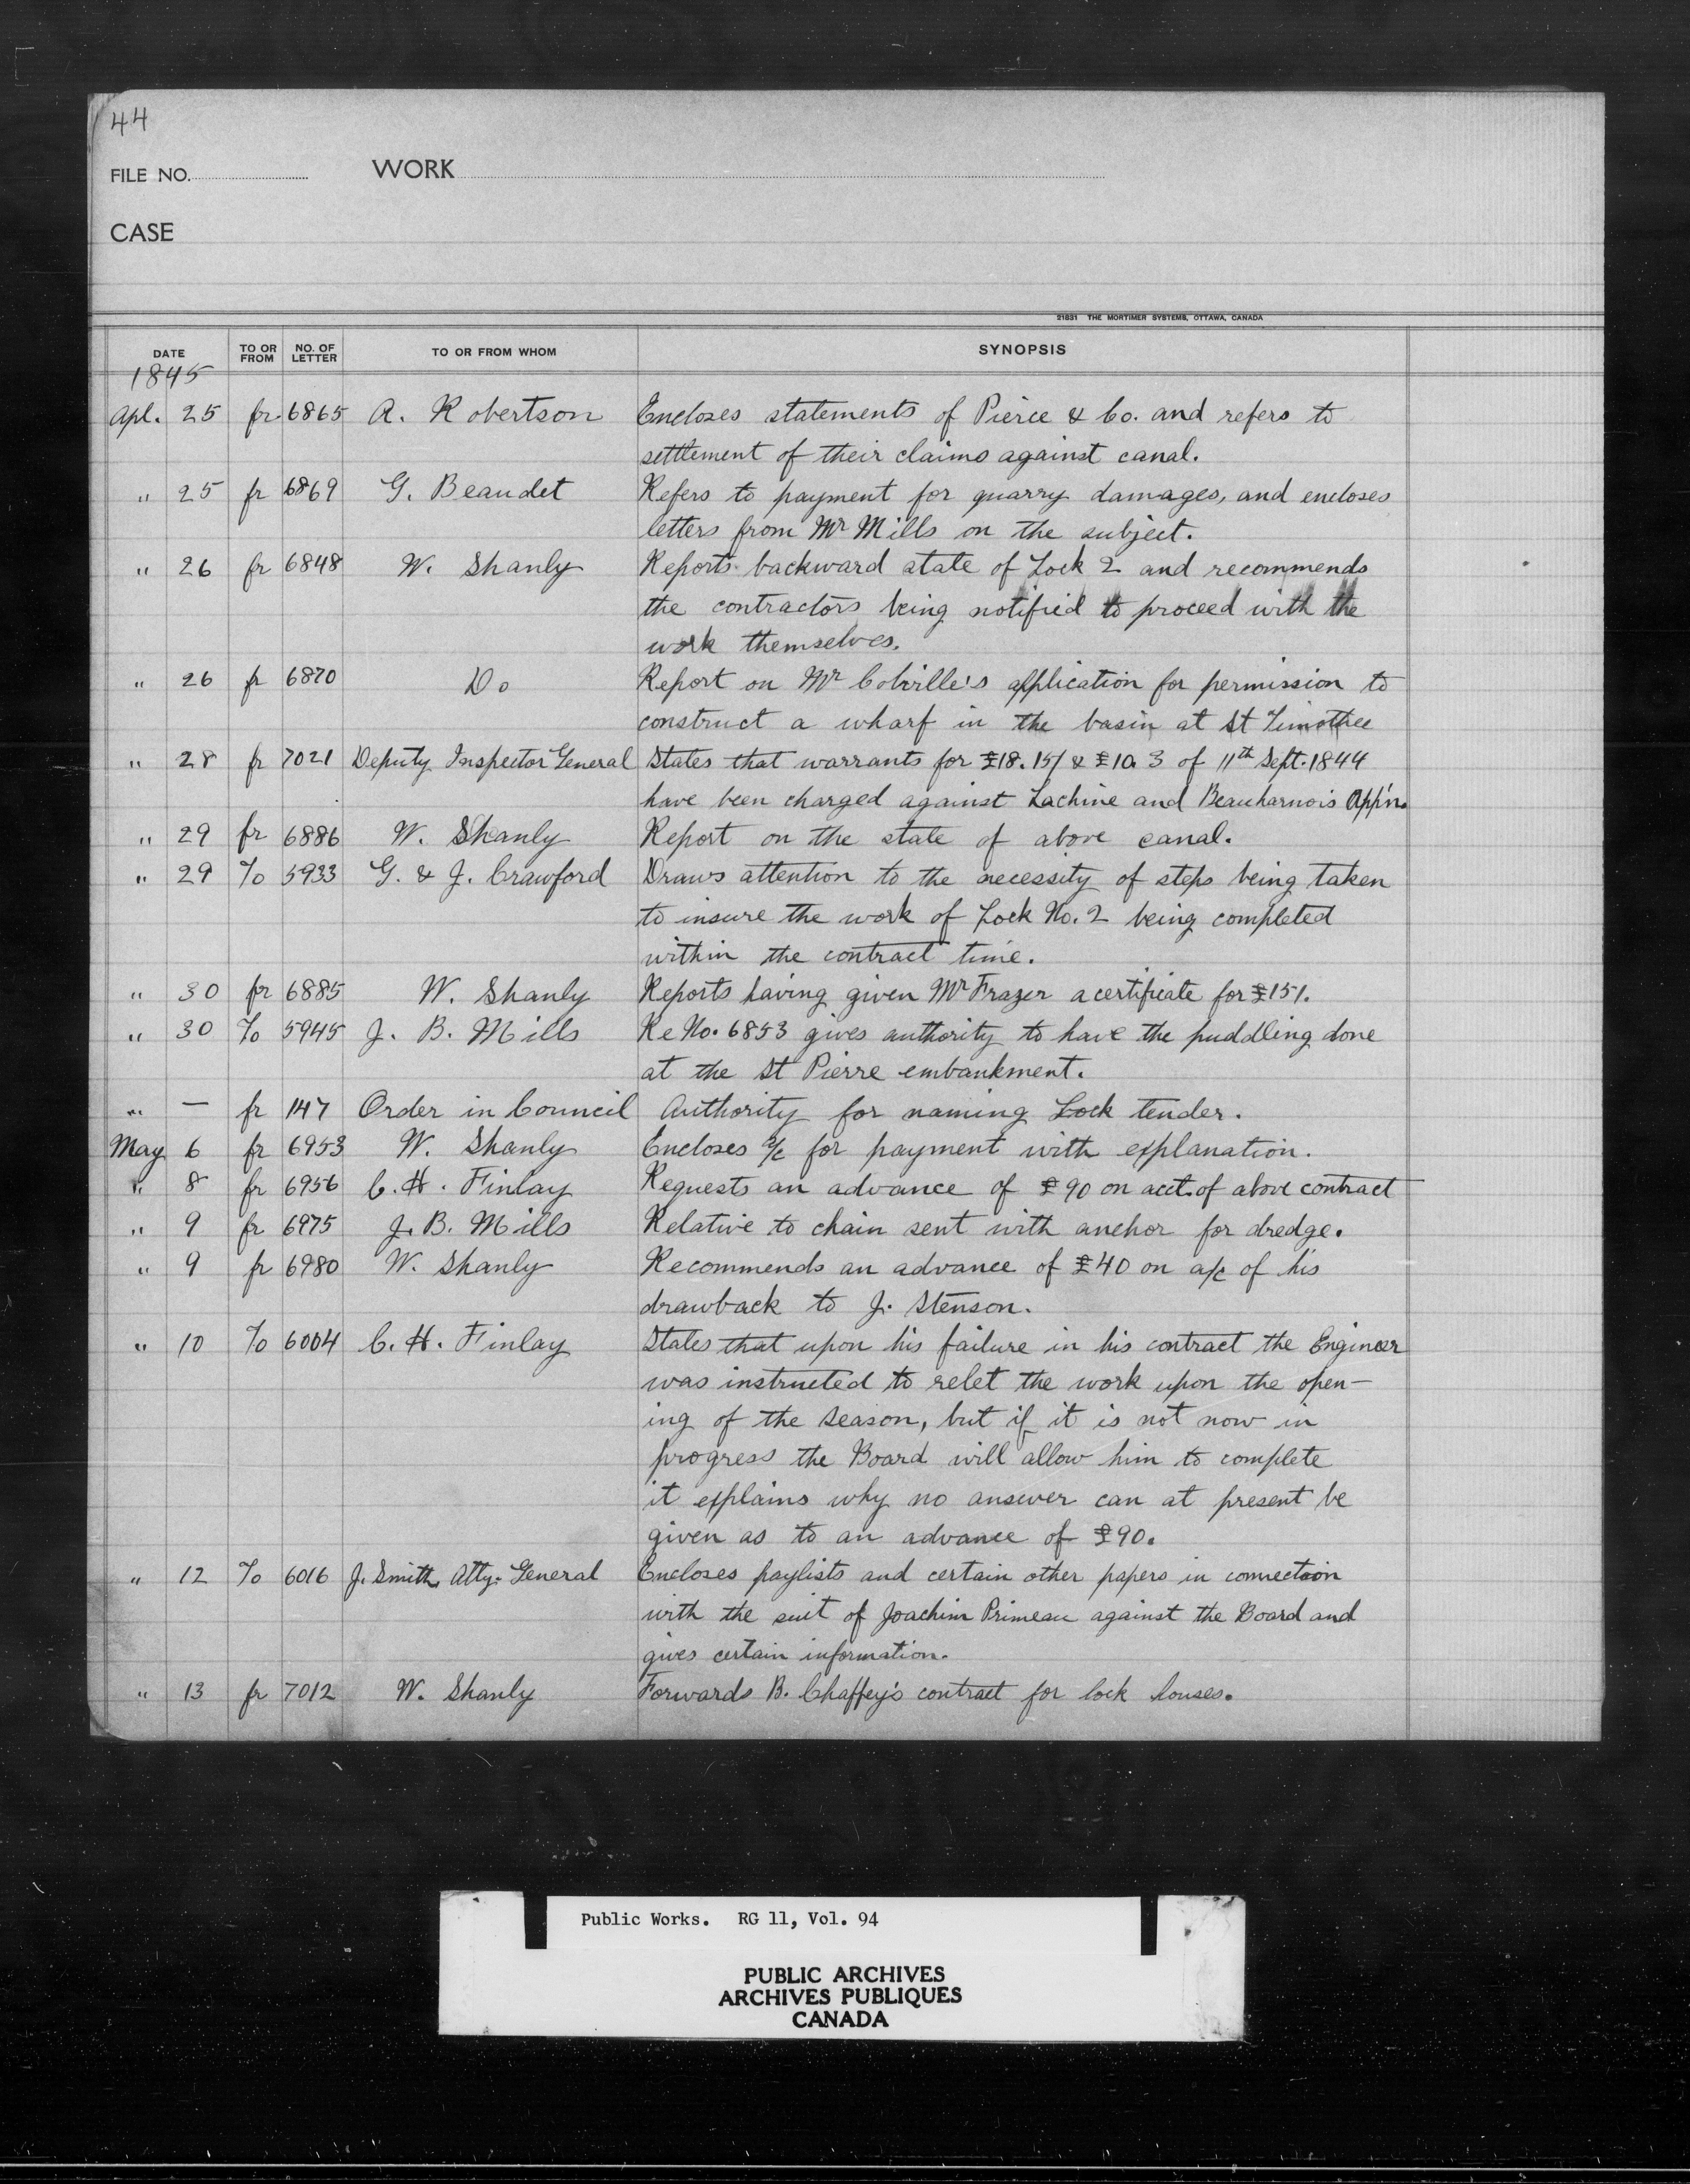 44
FILE NO. WORK
CASE
21831 THE MORTIMER SYSTEMS, OTTAWA, CANADA
DATE TO OR FROM NO. OF LETTER TO OR FROM WHOM SYNOPSIS
1845
Apl. 25 fr 6865 A. Robertson Encloses statements of Pierce & Co. and refers to
settlement of their claims against canal.
" 25 fr 6869 G. Beaudet Refers to payment for quarry damages, and encloses
letters from Mr Mills on the subject.
" 26 fr 6848 W. Shanly Reports backward state of Lock 2 and recommends
the contractors being notified to proceed with the
work themselves.
" 26 fr 6870 Do Report on Mr Colville's application for permission to
construct a wharf in the basin at St Timothee
" 28 fr 7021 Deputy Inspector General States that warrants for £18.15/ & £10.3 of 11th Sept. 1844
have been charged against Lachine and Beauharnois App'n.
" 29 fr 6886 W. Shanly Report on the state of above canal.
" 29 To 5933 G. & J. Crawford Draws attention to the necessity of steps being taken
to insure the work of Lock No. 2 being completed
within the contract time.
" 30 fr 6885 W. Shanly Reports having given Mr Frazer a certificate for £151.
" 30 To 5945 J. B. Mills Re No. 6853 gives authority to have the puddling done
at the St Pierre embankment.
" — fr 147 Order in Council Authority for naming Lock tender.
May 6 fr 6953 W. Shanly Encloses a/c for payment with explanation.
" 8 fr 6956 C. H. Finlay Requests an advance of £90 on acct. of above contract
" 9 fr 6975 J. B. Mills Relative to chain sent with anchor for dredge.
" 9 fr 6980 W. Shanly Recommends an advance of £40 on a/c of his
drawback to J. Stenson.
" 10 To 6004 C. H. Finlay States that upon his failure in his contract the Engineer
was instructed to relet the work upon the open-
ing of the season, but if it is not now in
progress the Board will allow him to complete
it explains why no answer can at present be
given as to an advance of £90.
" 12 To 6016 J. Smith, Atty. General Encloses paylists and certain other papers in connection
with the suit of Joachim Primeau against the Board and
gives certain information.
" 13 fr 7012 W. Shanly Forwards B. Chaffey's contract for lock houses.
Public Works. RG 11, Vol. 94
PUBLIC ARCHIVES
ARCHIVES PUBLIQUES
CANADA